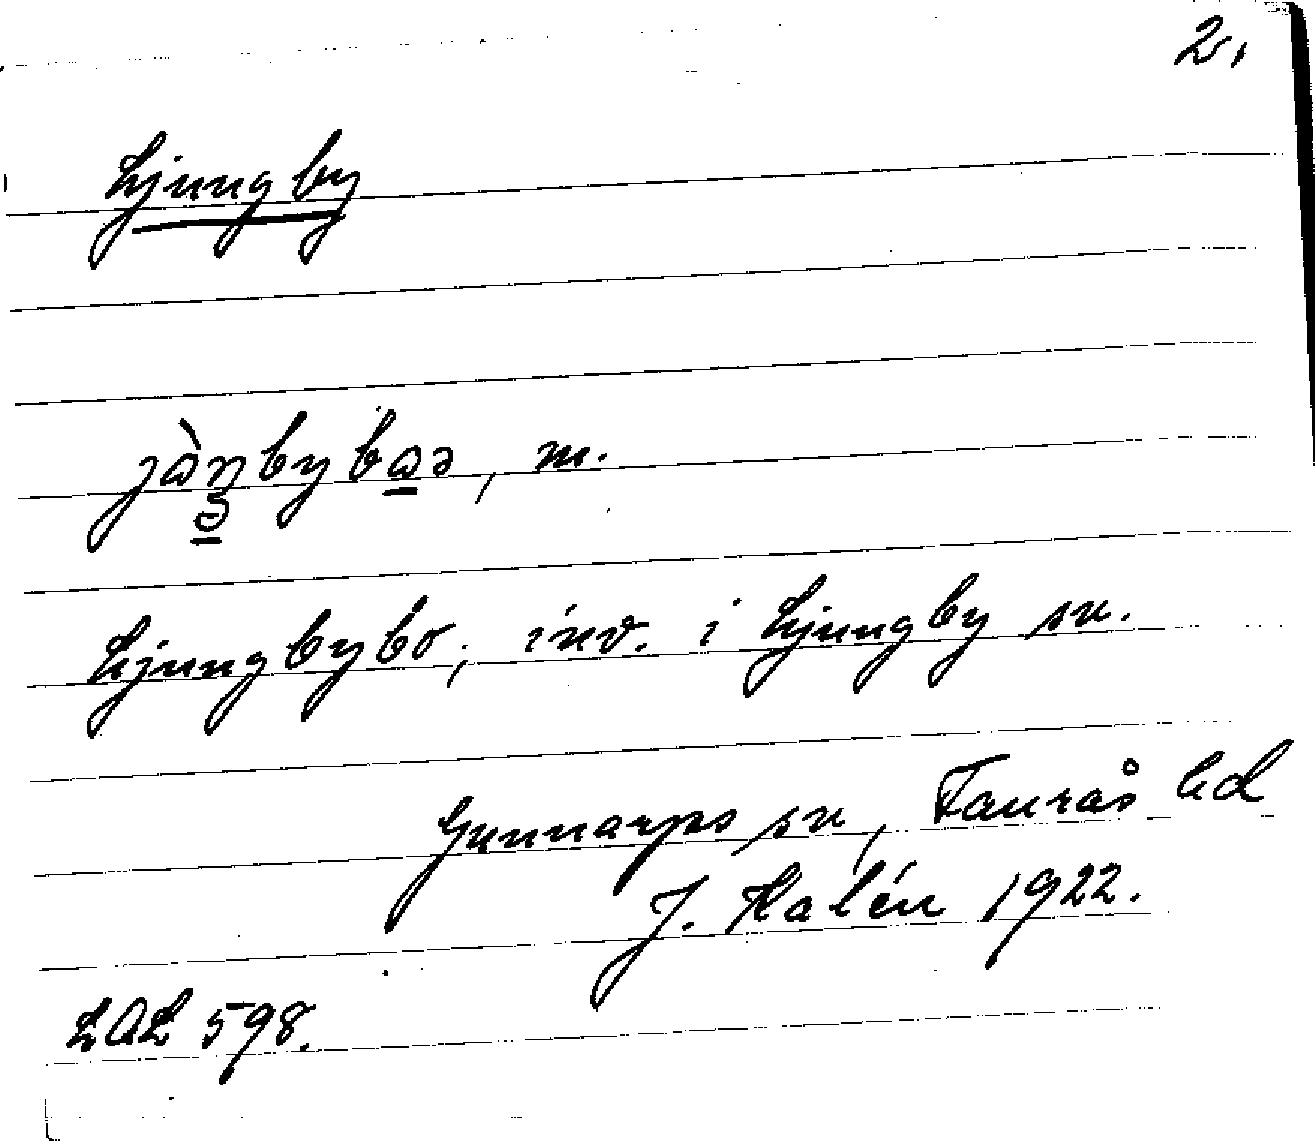 2.
Ljungby
Ljungbybo, inv. i Ljungby sn.
Gunnarps sn, Faurås hd
J. Kalén 1922.
LAL 598.